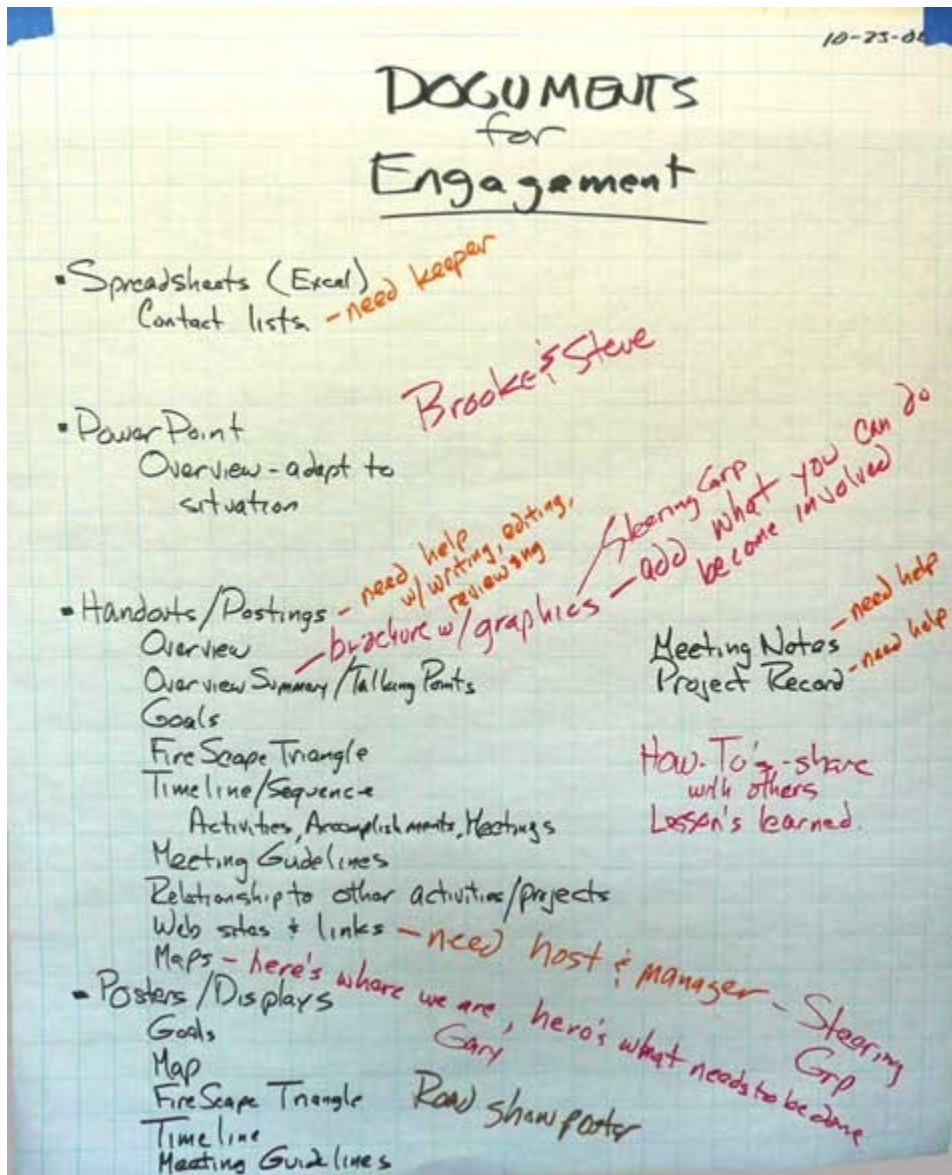 DOCUMENTS
for
Engagement
▪ Spreadsheets (Excel)
Contact lists. - need keeper
Brooke & Steve
▪ PowerPoint
Overview - adapt to
situation
▪ Handouts/Postings - need help
w/writing, editing,
reviewing
Overview
Overview Summary/Talking Points - brochure w/graphics - add what you can do
become involved
Steering
Goals
FireScape Triangle
Timeline/Sequence
Activities, Accomplishments, Meetings
Meeting Guidelines
Relationship to other activities/projects
Web sites & links - need host & manager - Steering
Grp
Maps - here's where we are, here's what needs to be done
Gary
Meeting Notes - need help
Project Record - need help
How-To's - share
with others
Lesson's learned.
▪ Posters/Displays
Goals
Map
FireScape Triangle
Timeline
Meeting Guidelines
Road show poster